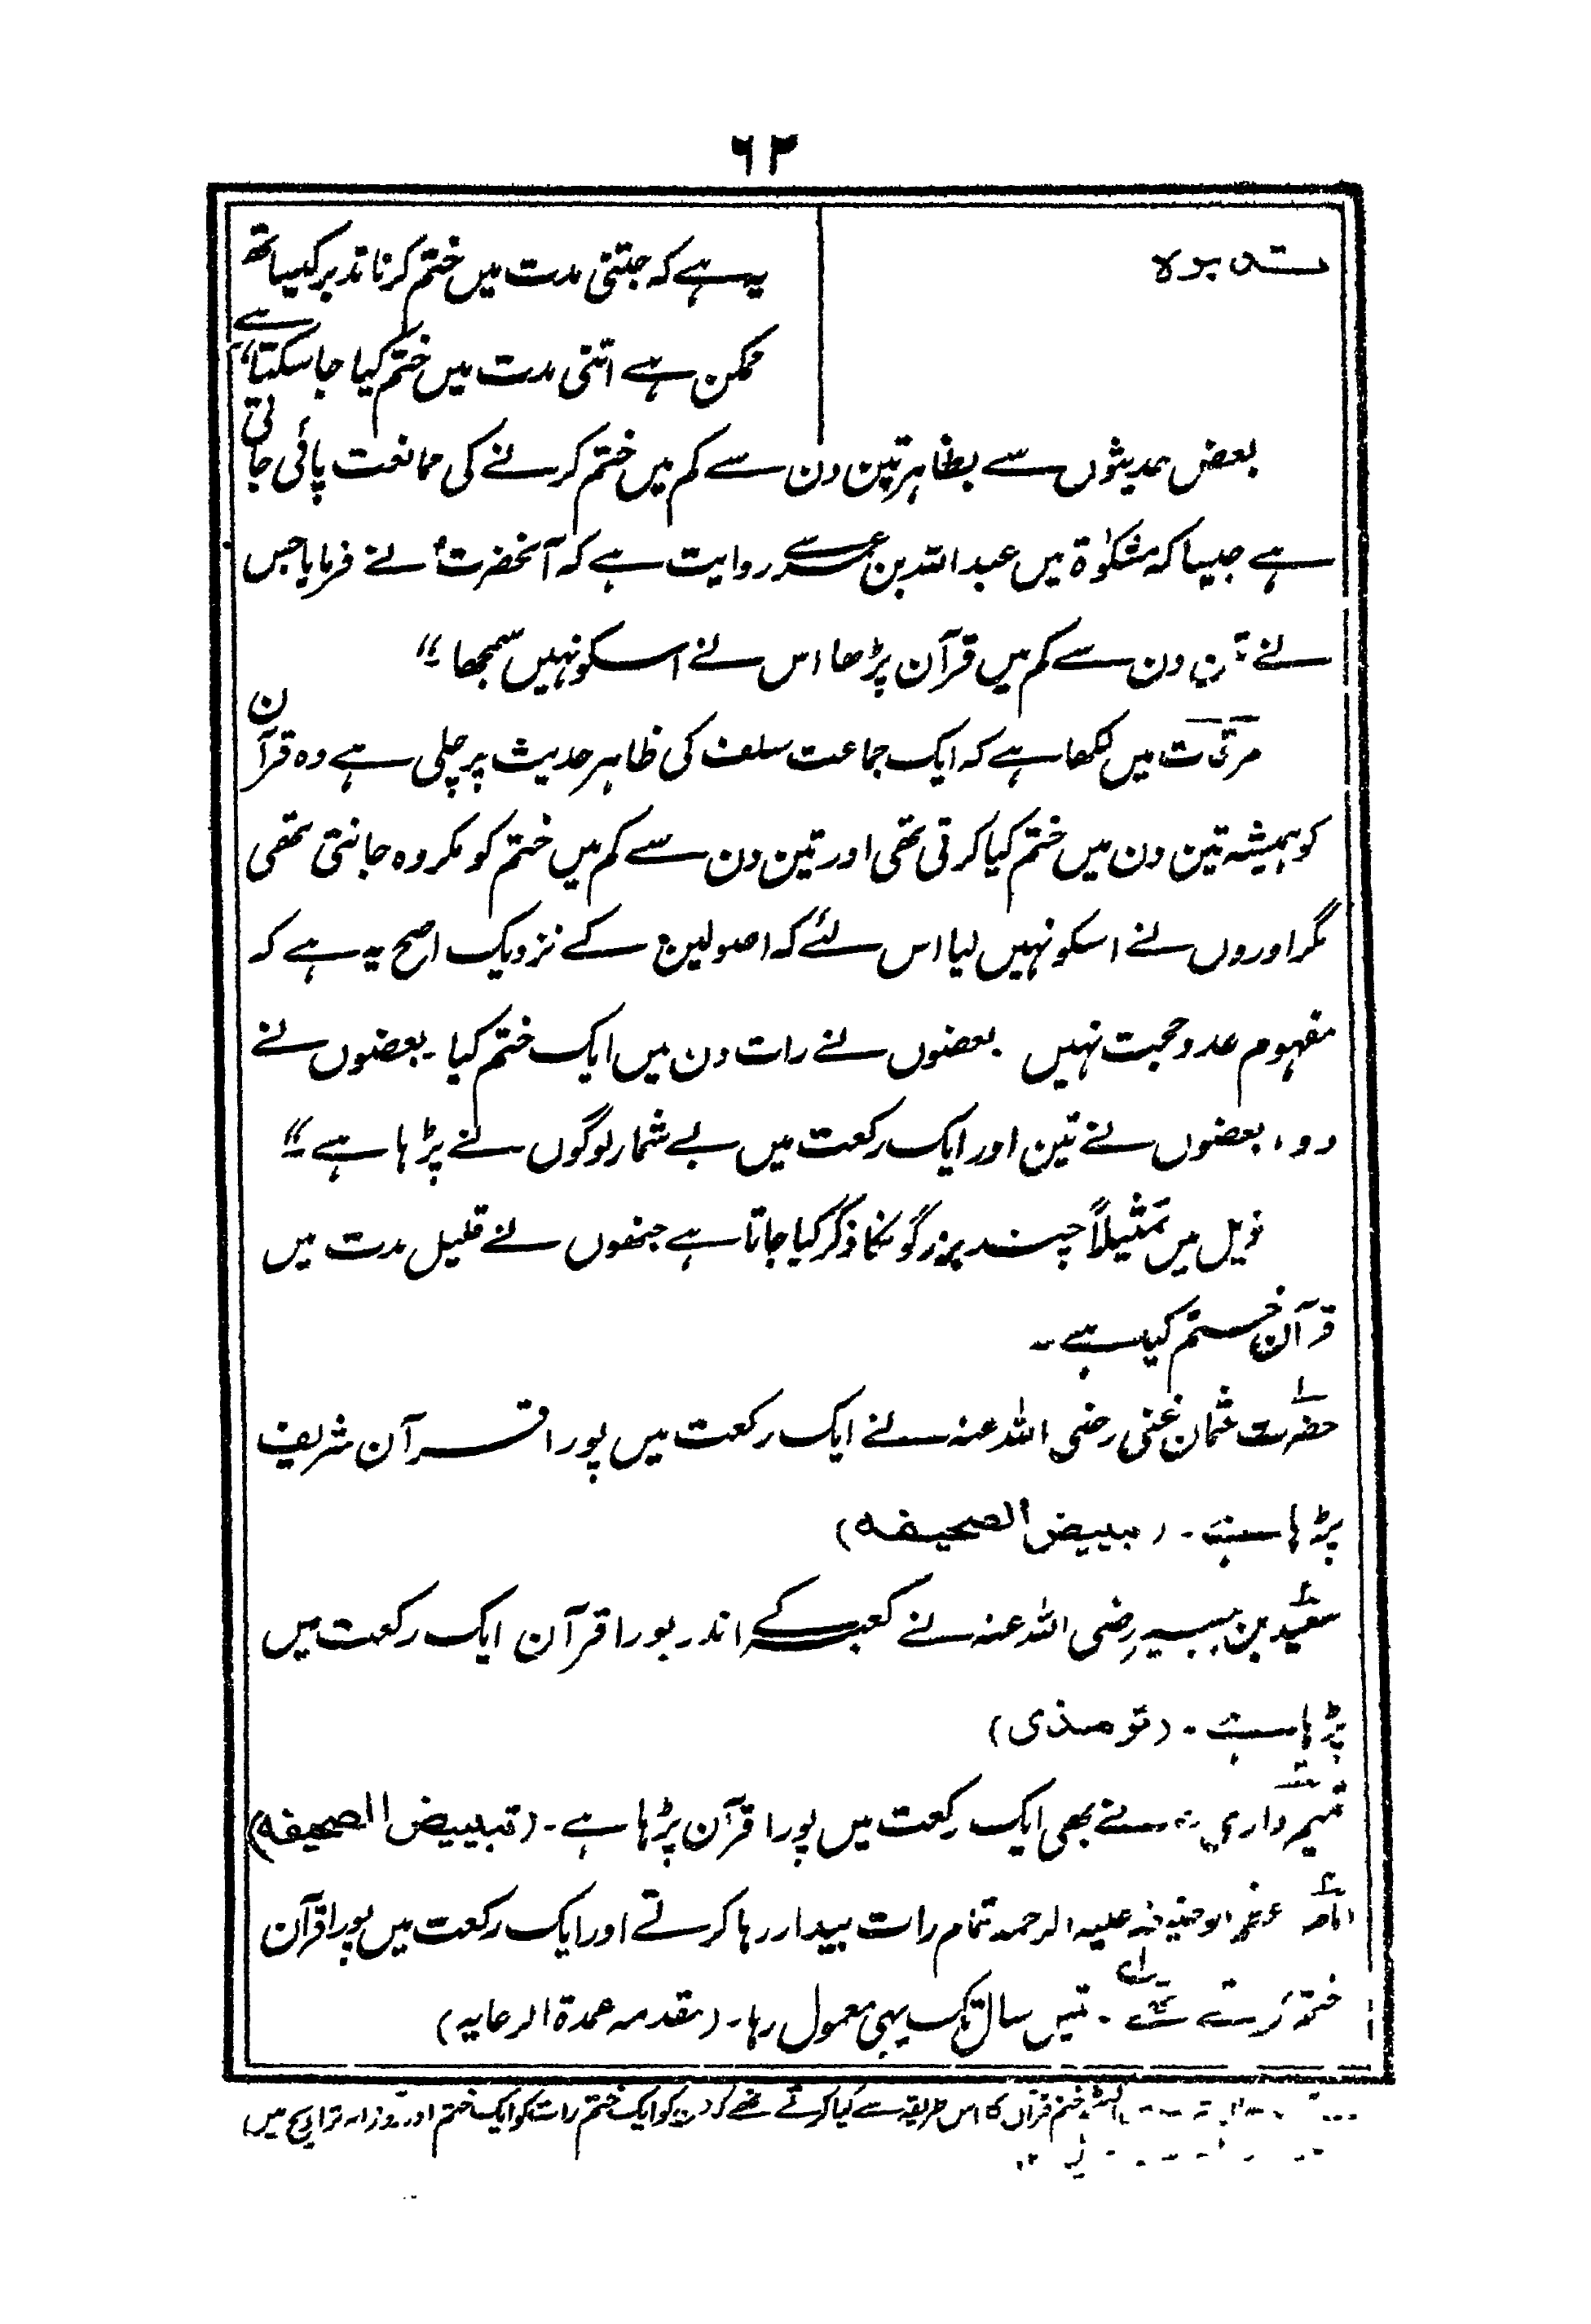 ٦٢
تدبره
یہ ہے کہ جتنی مدت میں ختم کرنا تدبر کیساتھ
ممکن ہے اتنی مدت میں ختم کیا جا سکتا ہے"
بعض حدیثوں سے بظاہر تین دن سے کم میں ختم کرنے کی ممانعت پائی جاتی
ہے جیسا کہ مشکوٰۃ میں عبداللہ بن عمر سے روایت ہے کہ آنحضرتؐ نے فرمایا جس
نے تین دن سے کم میں قرآن پڑھا اس نے اسکو نہیں سمجھا ۔"
مرقات میں لکھا ہے کہ ایک جماعت سلف کی ظاہر حدیث پر چلی ہے وہ قرآن
کو ہمیشہ تین دن میں ختم کیا کرتی تھی اور تین دن سے کم میں ختم کو مکروہ جانتی تھی
مگر اوروں نے اسکو نہیں لیا اس لئے کہ اصولیین کے نزدیک اصح یہ ہے کہ
مفہوم عدد حجت نہیں بعضوں نے رات دن میں ایک ختم کیا ۔ بعضوں نے
دو ، بعضوں نے تین اور ایک رکعت میں بے شمار لوگوں نے پڑہا ہے ۔"
ذیل میں تمثیلاً چند بزرگونکا ذکر کیا جاتا ہے جنھوں نے قلیل مدت میں
قرآن ختم کیا ہے ۔
حضرت عثمان غنی رضی اللہ عنہ نے ایک رکعت میں پورا قرآن شریف
پڑہا ہے ۔ (تبییض الصحیفہ)
سعید بن جبیر رضی اللہ عنہ نے کعبہ کے اندر پورا قرآن ایک رکعت میں
پڑہا ہے ۔ (ترمذی)
تمیم داری رض نے بھی ایک رکعت میں پورا قرآن پڑہا ہے ۔ (تبییض الصحیفہ)
امام اعظم ابو حنیفہ علیہ الرحمہ تمام رات بیدار رہا کرتے اور ایک رکعت میں پورا قرآن
ختم کرتے تھے ۔ تیس سال تک یہی معمول رہا ۔ (مقدمہ عمدۃ الرعایہ)
ختم قرآن کا اس طریقہ سے کیا کرتے تھے کہ دن کو ایک ختم رات کو ایک ختم اور روزانہ تراویح میں)